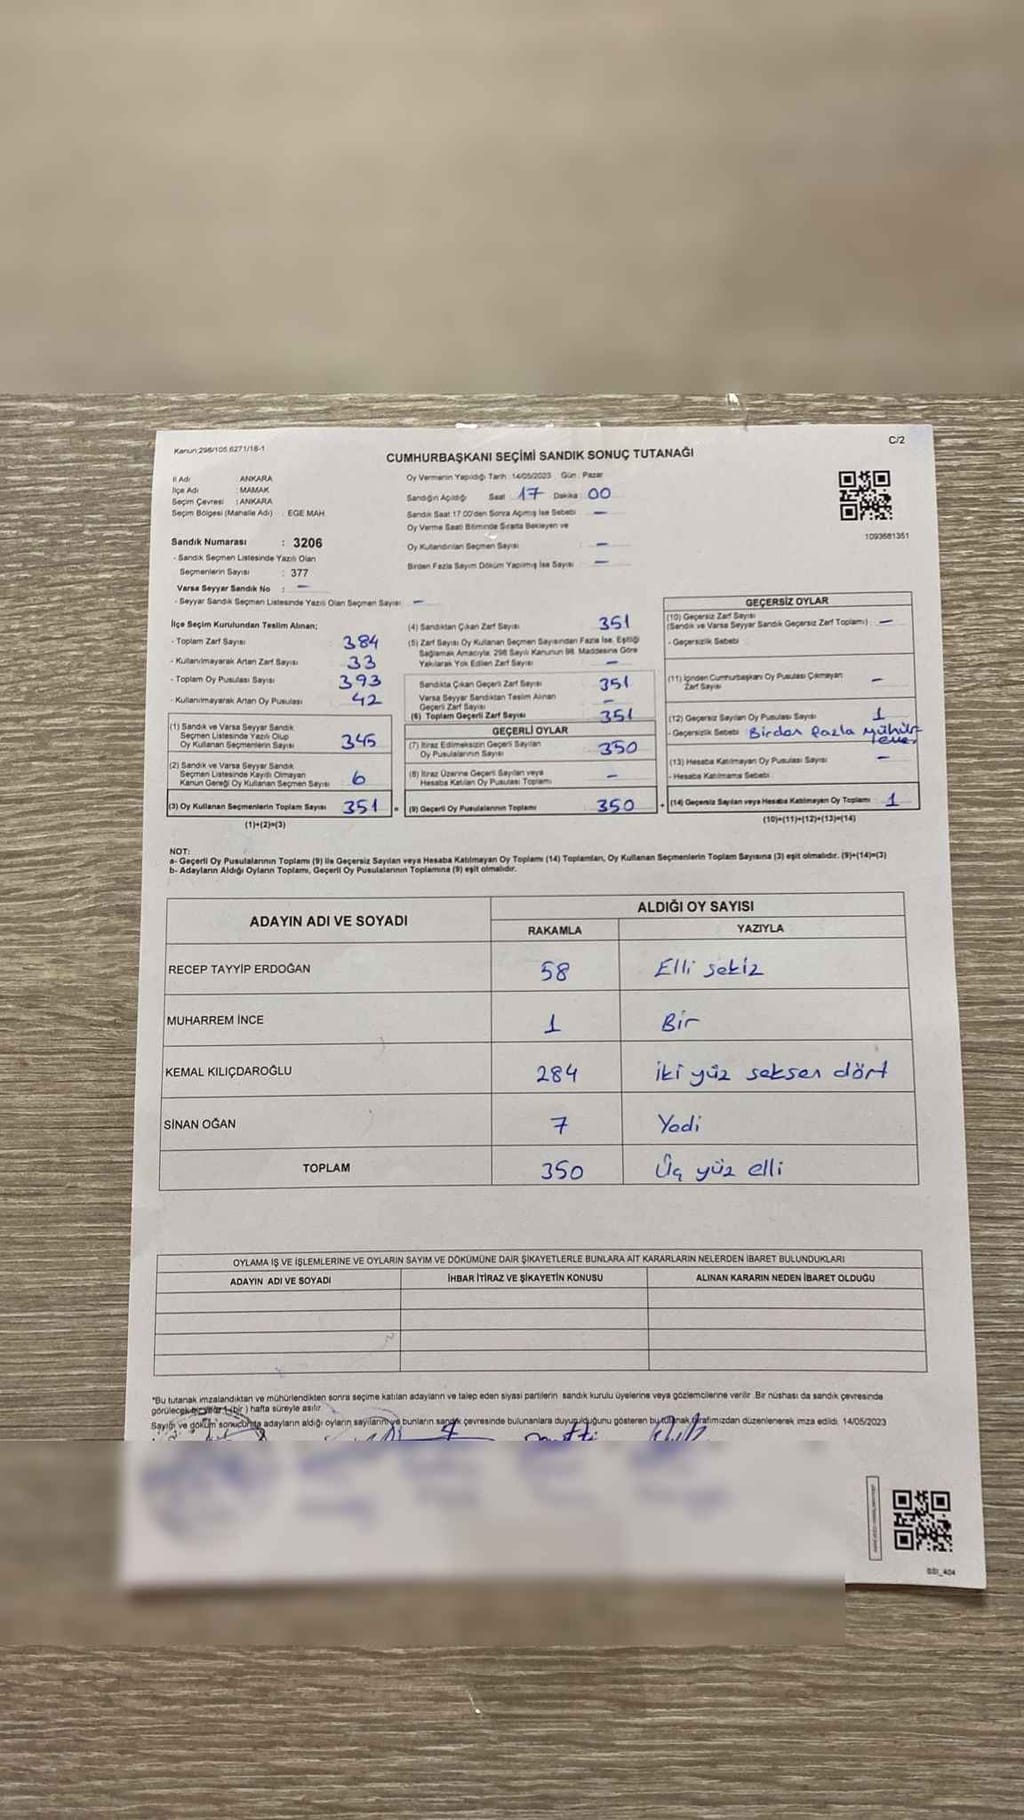 Kanun:298/105,6271/18-1
C/2
CUMHURBAŞKANI SEÇİMİ SANDIK SONUÇ TUTANAĞI
İl Adı : ANKARA
İlçe Adı : MAMAK
Seçim Çevresi : ANKARA
Seçim Bölgesi (Mahalle Adı) : EGE MAH.
Sandık Numarası : 3206
- Sandık Seçmen Listesinde Yazılı Olan
Seçmenlerin Sayısı : 377
Varsa Seyyar Sandık No : -
- Seyyar Sandık Seçmen Listesinde Yazılı Olan Seçmen Sayısı: -
Oy Vermenin Yapıldığı Tarih :14/05/2023 Gün : Pazar
Sandığın Açıldığı Saat : 17 Dakika : 00
Sandık Saat 17:00'den Sonra Açılmış İse Sebebi : -
Oy Verme Saati Bitiminde Sırada Bekleyen ve
Oy Kullandırılan Seçmen Sayısı : -
Birden Fazla Sayım Döküm Yapılmış İse Sayısı : -
1093681351
İlçe Seçim Kurulundan Teslim Alınan;
- Toplam Zarf Sayısı : 384
- Kullanılmayarak Artan Zarf Sayısı : 33
- Toplam Oy Pusulası Sayısı : 393
- Kullanılmayarak Artan Oy Pusulası : 42
(1) Sandık ve Varsa Seyyar Sandık
Seçmen Listesinde Yazılı Olup
Oy Kullanan Seçmenlerin Sayısı : 345
(2) Sandık ve Varsa Seyyar Sandık
Seçmen Listesinde Kayıtlı Olmayan
Kanun Gereği Oy Kullanan Seçmen Sayısı : 6
(3) Oy Kullanan Seçmenlerin Toplam Sayısı : 351
(1)+(2)=(3)
(4) Sandıktan Çıkan Zarf Sayısı : 351
(5) Zarf Sayısı Oy Kullanan Seçmen Sayısından Fazla İse, Eşitliği
Sağlamak Amacıyla, 298 Sayılı Kanunun 98. Maddesine Göre
Yakılarak Yok Edilen Zarf Sayısı : -
Sandıkta Çıkan Geçerli Zarf Sayısı : 351
Varsa Seyyar Sandıktan Teslim Alınan
Geçerli Zarf Sayısı : -
(6) Toplam Geçerli Zarf Sayısı : 351
GEÇERLİ OYLAR
(7) İtiraz Edilmeksizin Geçerli Sayılan
Oy Pusulalarının Sayısı : 350
(8) İtiraz Üzerine Geçerli Sayılan veya
Hesaba Katılan Oy Pusulası Toplamı : -
= (9) Geçerli Oy Pusulalarının Toplamı : 350
GEÇERSİZ OYLAR
(10) Geçersiz Zarf Sayısı
(Sandık ve Varsa Seyyar Sandık Geçersiz Zarf Toplamı) : -
- Geçersizlik Sebebi :
(11) İçinden Cumhurbaşkanı Oy Pusulası Çıkmayan
Zarf Sayısı : -
(12) Geçersiz Sayılan Oy Pusulası Sayısı : 1
- Geçersizlik Sebebi : Birden fazla mühür
(13) Hesaba Katılmayan Oy Pusulası Sayısı : -
- Hesaba Katılmama Sebebi :
+ (14) Geçersiz Sayılan veya Hesaba Katılmayan Oy Toplamı : 1
(10)+(11)+(12)+(13)=(14)
NOT:
a- Geçerli Oy Pusulalarının Toplamı (9) ile Geçersiz Sayılan veya Hesaba Katılmayan Oy Toplamı (14) Toplamları, Oy Kullanan Seçmenlerin Toplam Sayısına (3) eşit olmalıdır. (9)+(14)=(3)
b- Adayların Aldığı Oyların Toplamı, Geçerli Oy Pusulalarının Toplamına (9) eşit olmalıdır.
ADAYIN ADI VE SOYADI
ALDIĞI OY SAYISI
RAKAMLA YAZIYLA
RECEP TAYYİP ERDOĞAN 58 Elli sekiz
MUHARREM İNCE 1 Bir
KEMAL KILIÇDAROĞLU 284 iki yüz seksen dört
SİNAN OĞAN 7 Yedi
TOPLAM 350 Üç yüz elli
OYLAMA İŞ VE İŞLEMLERİNE VE OYLARIN SAYIM VE DÖKÜMÜNE DAİR ŞİKAYETLERLE BUNLARA AİT KARARLARIN NELERDEN İBARET BULUNDUKLARI
ADAYIN ADI VE SOYADI İHBAR İTİRAZ VE ŞİKAYETİN KONUSU ALINAN KARARIN NEDEN İBARET OLDUĞU
*Bu tutanak imzalandıktan ve mühürlendikten sonra seçime katılan adayların ve talep eden siyasi partilerin sandık kurulu üyelerine veya gözlemcilerine verilir. Bir nüshası da sandık çevresinde
görülecek bir yere 1 (bir) hafta süreyle asılır.
Sayım ve döküm sonucunda adayların aldığı oyların sayılarını ve bunların sandık çevresinde bulunanlara duyurulduğunu gösteren bu tutanak tarafımızdan düzenlenerek imza edildi. 14/05/2023
SSI_404